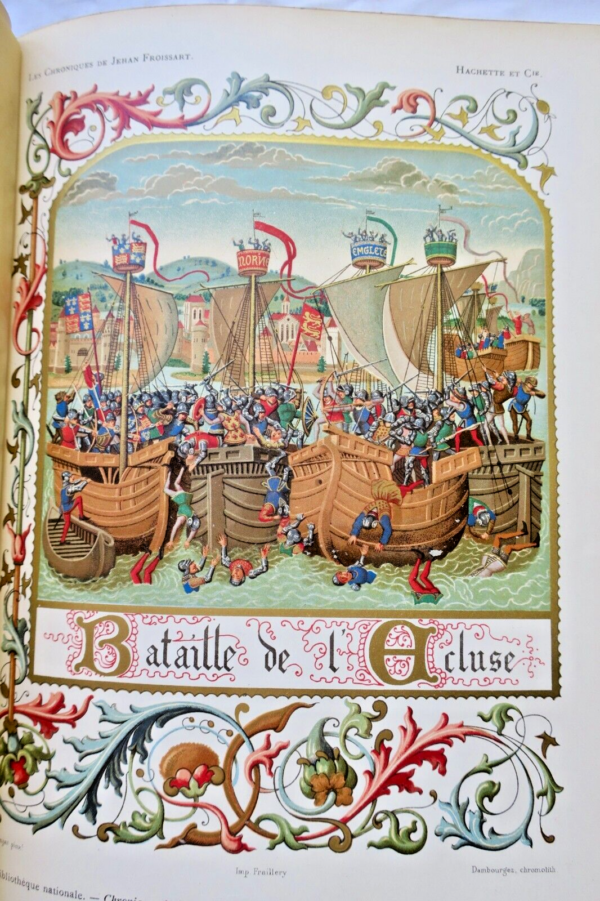 LES CHRONIQUES DE JEHAN FROISSART.
HACHETTE ET Cie.
NORN
EMGLET
Bataille de l'Ecluse
Imp Fraillery
Dambourgez, chromolith.
Bibliothèque nationale. —